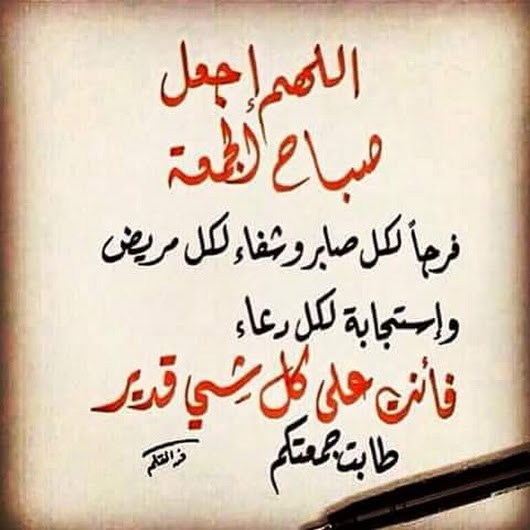 اللهم إجعل
صباح الجمعة
فرجاً لكل صابر وشفاء لكل مريض
وإستجابة لكل دعاء
فأنت على كل شيء قدير
طابت جمعتكم
فن القلم